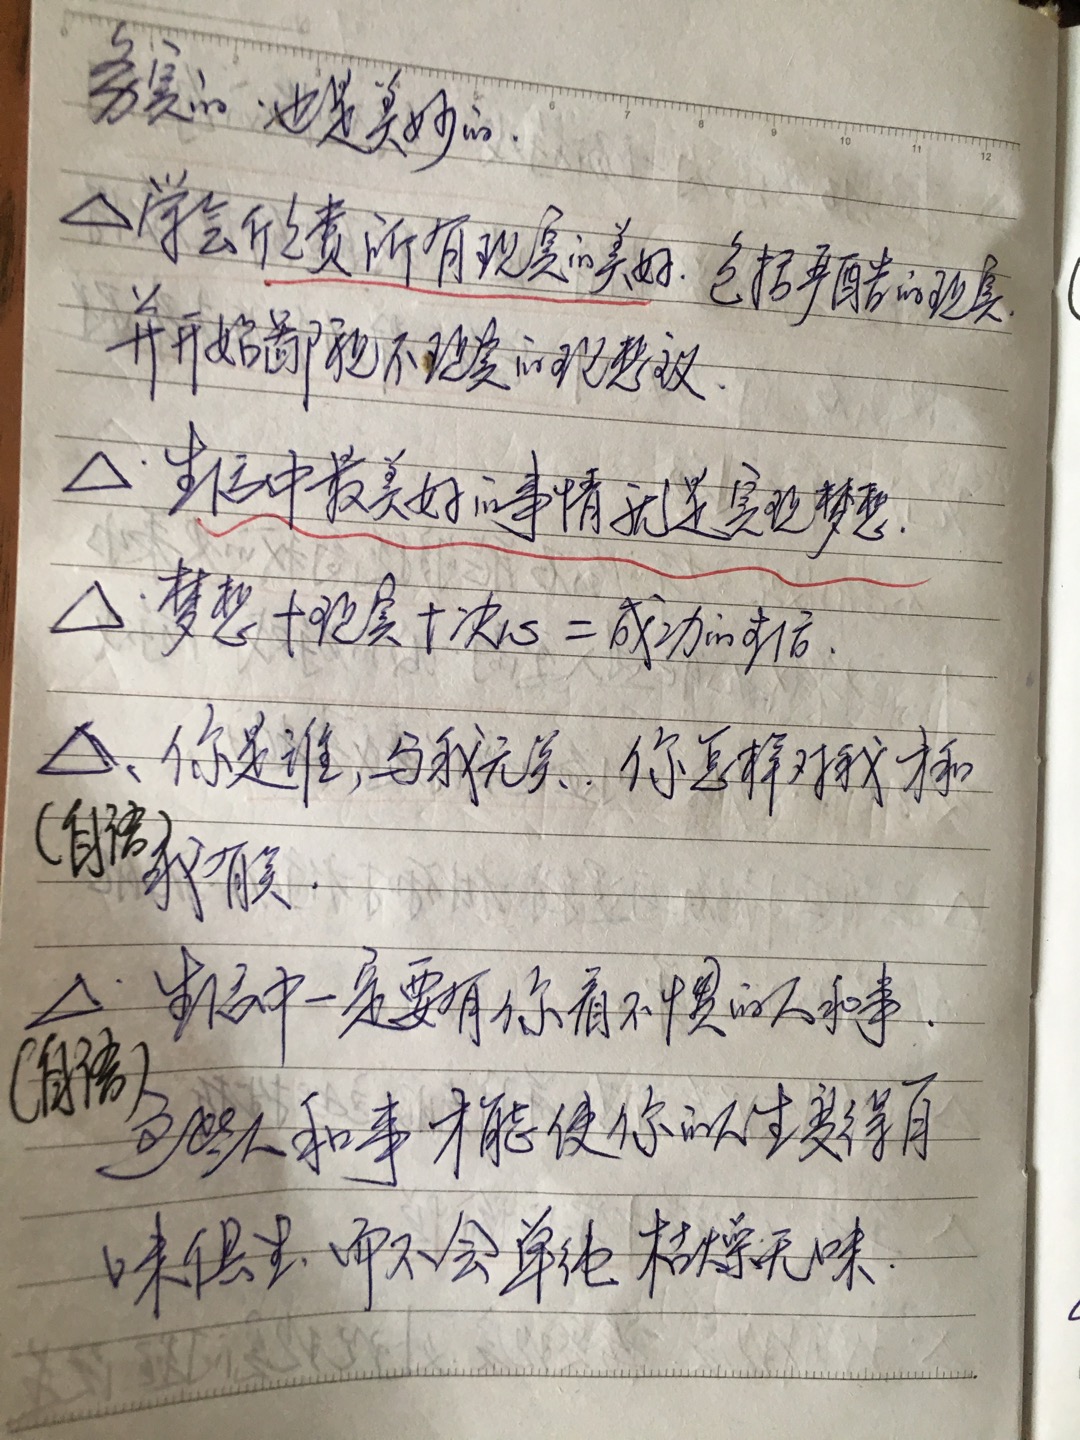 务实的.也是美妙的.
6 7 8 9 10 11 12
△学会欣赏所有现实的美好.包括严酷的现实.
并开始鄙视不现实的理想议.
△·生活中最美好的事情就是实现梦想.
△·梦想+现实+决心=成功的生活.
△、你是谁,与我无关..你怎样对我才和
(自语)我有关.
△·生活中一定要有你看不惯的人和事.
(自语)
这些人和事才能使你的人生变得有
味俱生.而不会单纯枯燥无味.